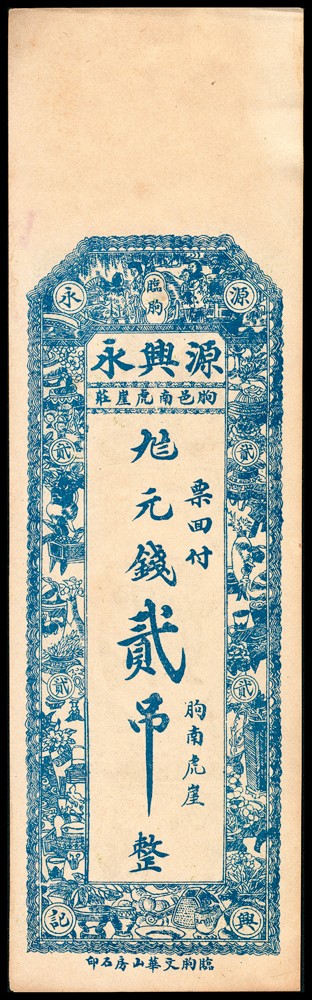 臨朐
源
興
永
記
源興永
朐邑南虎崖莊
貳
貳
貳
貳
票回付
朐南虎崖
元錢貳吊整
臨朐文華山房石印